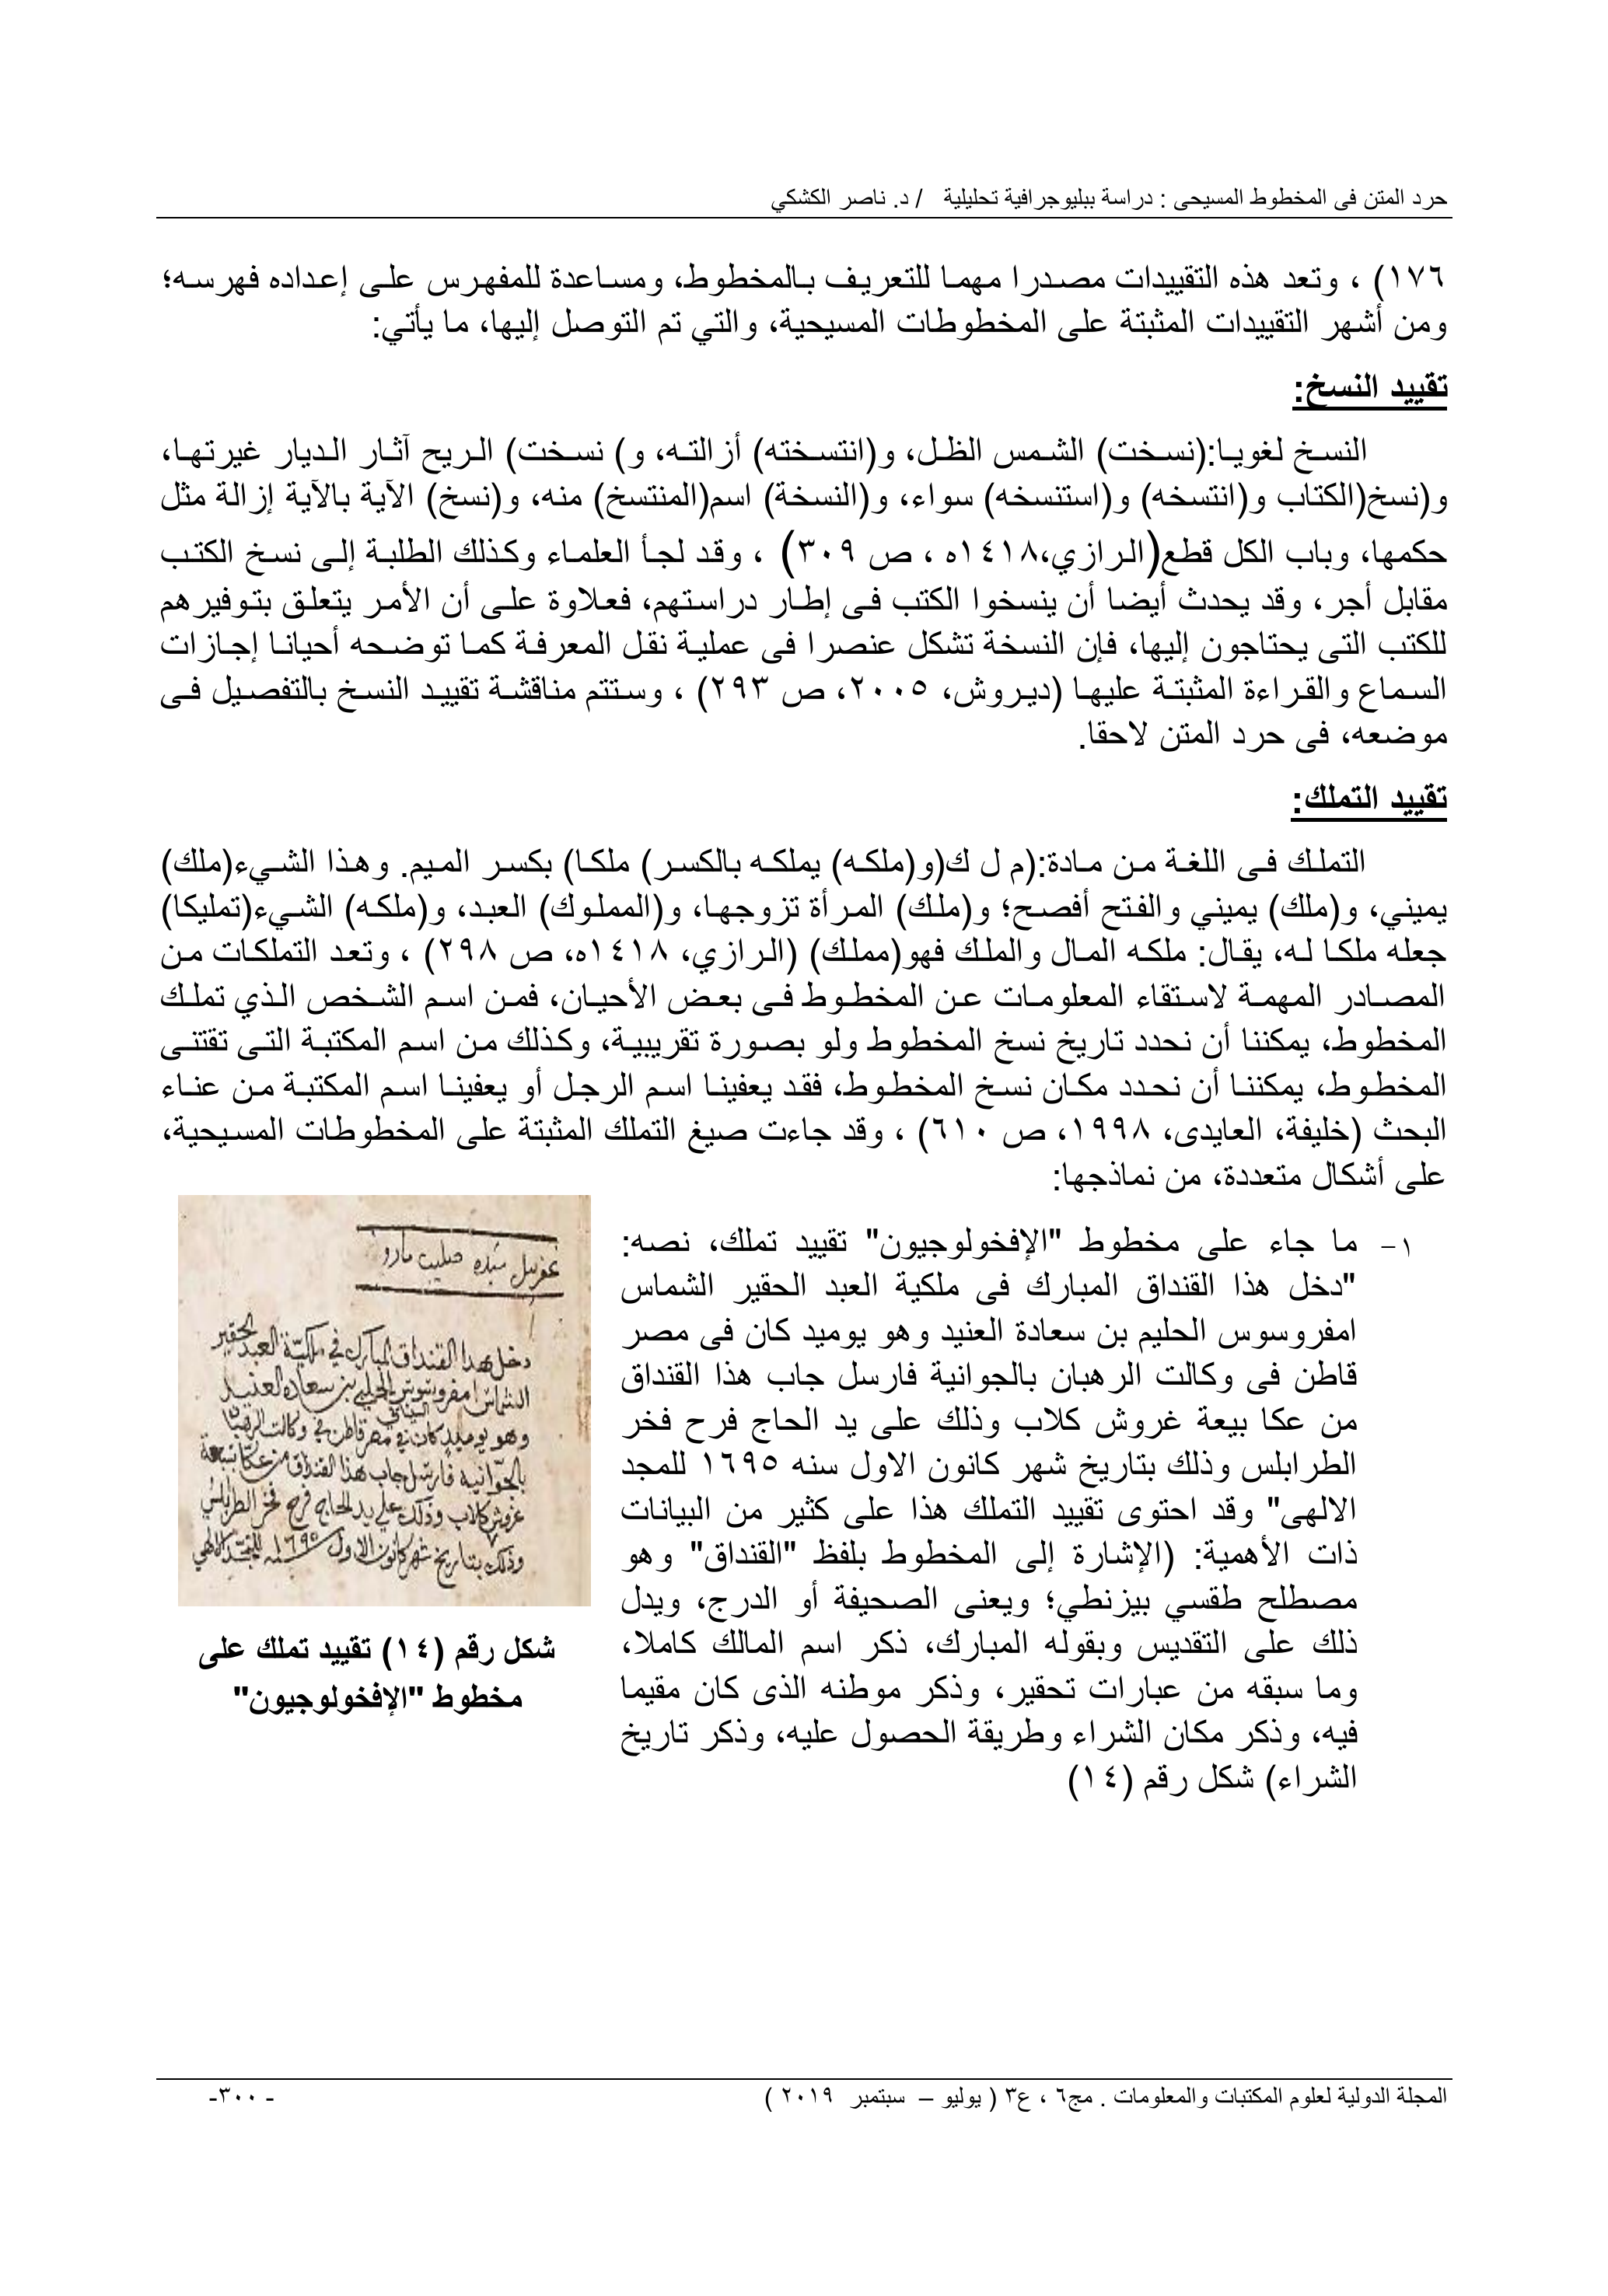 حرد المتن فى المخطوط المسيحى : دراسة ببليوجرافية تحليلية / د. ناصر الكشكي
١٧٦) ، وتعد هذه التقييدات مصدرا مهما للتعريف بالمخطوط، ومساعدة للمفهرس على إعداده فهرسه؛
ومن أشهر التقييدات المثبتة على المخطوطات المسيحية، والتي تم التوصل إليها، ما يأتي:
تقييد النسخ:
النسخ لغويا:(نسخت) الشمس الظل، و(انتسخته) أزالته، و) نسخت) الريح آثار الديار غيرتها،
و(نسخ(الكتاب و(انتسخه) و(استنسخه) سواء، و(النسخة) اسم(المنتسخ) منه، و(نسخ) الآية بالآية إزالة مثل
حكمها، وباب الكل قطع(الرازي،١٤١٨ه ، ص ٣٠٩) ، وقد لجأ العلماء وكذلك الطلبة إلى نسخ الكتب
مقابل أجر، وقد يحدث أيضا أن ينسخوا الكتب فى إطار دراستهم، فعلاوة على أن الأمر يتعلق بتوفيرهم
للكتب التى يحتاجون إليها، فإن النسخة تشكل عنصرا فى عملية نقل المعرفة كما توضحه أحيانا إجازات
السماع والقراءة المثبتة عليها (ديروش، ٢٠٠٥، ص ٢٩٣) ، وستتم مناقشة تقييد النسخ بالتفصيل فى
موضعه، فى حرد المتن لاحقا.
تقييد التملك:
التملك فى اللغة من مادة:(م ل ك(و(ملكه) يملكه بالكسر) ملكا) بكسر الميم. وهذا الشيء(ملك)
يميني، و(ملك) يميني والفتح أفصح؛ و(ملك) المرأة تزوجها، و(المملوك) العبد، و(ملكه) الشيء(تمليكا)
جعله ملكا له، يقال: ملكه المال والملك فهو(مملك) (الرازي، ١٤١٨ه، ص ٢٩٨) ، وتعد التملكات من
المصادر المهمة لاستقاء المعلومات عن المخطوط فى بعض الأحيان، فمن اسم الشخص الذي تملك
المخطوط، يمكننا أن نحدد تاريخ نسخ المخطوط ولو بصورة تقريبية، وكذلك من اسم المكتبة التى تقتنى
المخطوط، يمكننا أن نحدد مكان نسخ المخطوط، فقد يعفينا اسم الرجل أو يعفينا اسم المكتبة من عناء
البحث (خليفة، العايدى، ١٩٩٨، ص ٦١٠) ، وقد جاءت صيغ التملك المثبتة على المخطوطات المسيحية،
على أشكال متعددة، من نماذجها:
١- ما جاء على مخطوط "الإفخولوجيون" تقييد تملك، نصه:
"دخل هذا القنداق المبارك فى ملكية العبد الحقير الشماس
امفروسوس الحليم بن سعادة العنيد وهو يوميد كان فى مصر
قاطن فى وكالت الرهبان بالجوانية فارسل جاب هذا القنداق
من عكا بيعة غروش كلاب وذلك على يد الحاج فرح فخر
الطرابلس وذلك بتاريخ شهر كانون الاول سنه ١٦٩٥ للمجد
الالهى" وقد احتوى تقييد التملك هذا على كثير من البيانات
ذات الأهمية: (الإشارة إلى المخطوط بلفظ "القنداق" وهو
مصطلح طقسي بيزنطي؛ ويعنى الصحيفة أو الدرج، ويدل
ذلك على التقديس وبقوله المبارك، ذكر اسم المالك كاملا،
وما سبقه من عبارات تحقير، وذكر موطنه الذى كان مقيما
فيه، وذكر مكان الشراء وطريقة الحصول عليه، وذكر تاريخ
الشراء) شكل رقم (١٤)
دخل هذا القنداق المبارك في ملكية العبد الحقير
الشماس امفروسوس الحليم بن سعاده العنيد
وهو يوميد كان في مصر قاطن في وكالت الرهبان
بالجوانيه فارسل جاب هذا القنداق من عكا
غروش كلاب وذلك على يد الحاج فرح فخر الطرابلسي
وذلك بتاريخ شهر كانون الاول سنه ١٦٩٥ للمجد الالهي
شكل رقم (١٤) تقييد تملك على
مخطوط "الإفخولوجيون"
المجلة الدولية لعلوم المكتبات والمعلومات . مج٦ ، ع٣ ( يوليو – سبتمبر ٢٠١٩ )
- ٣٠٠-